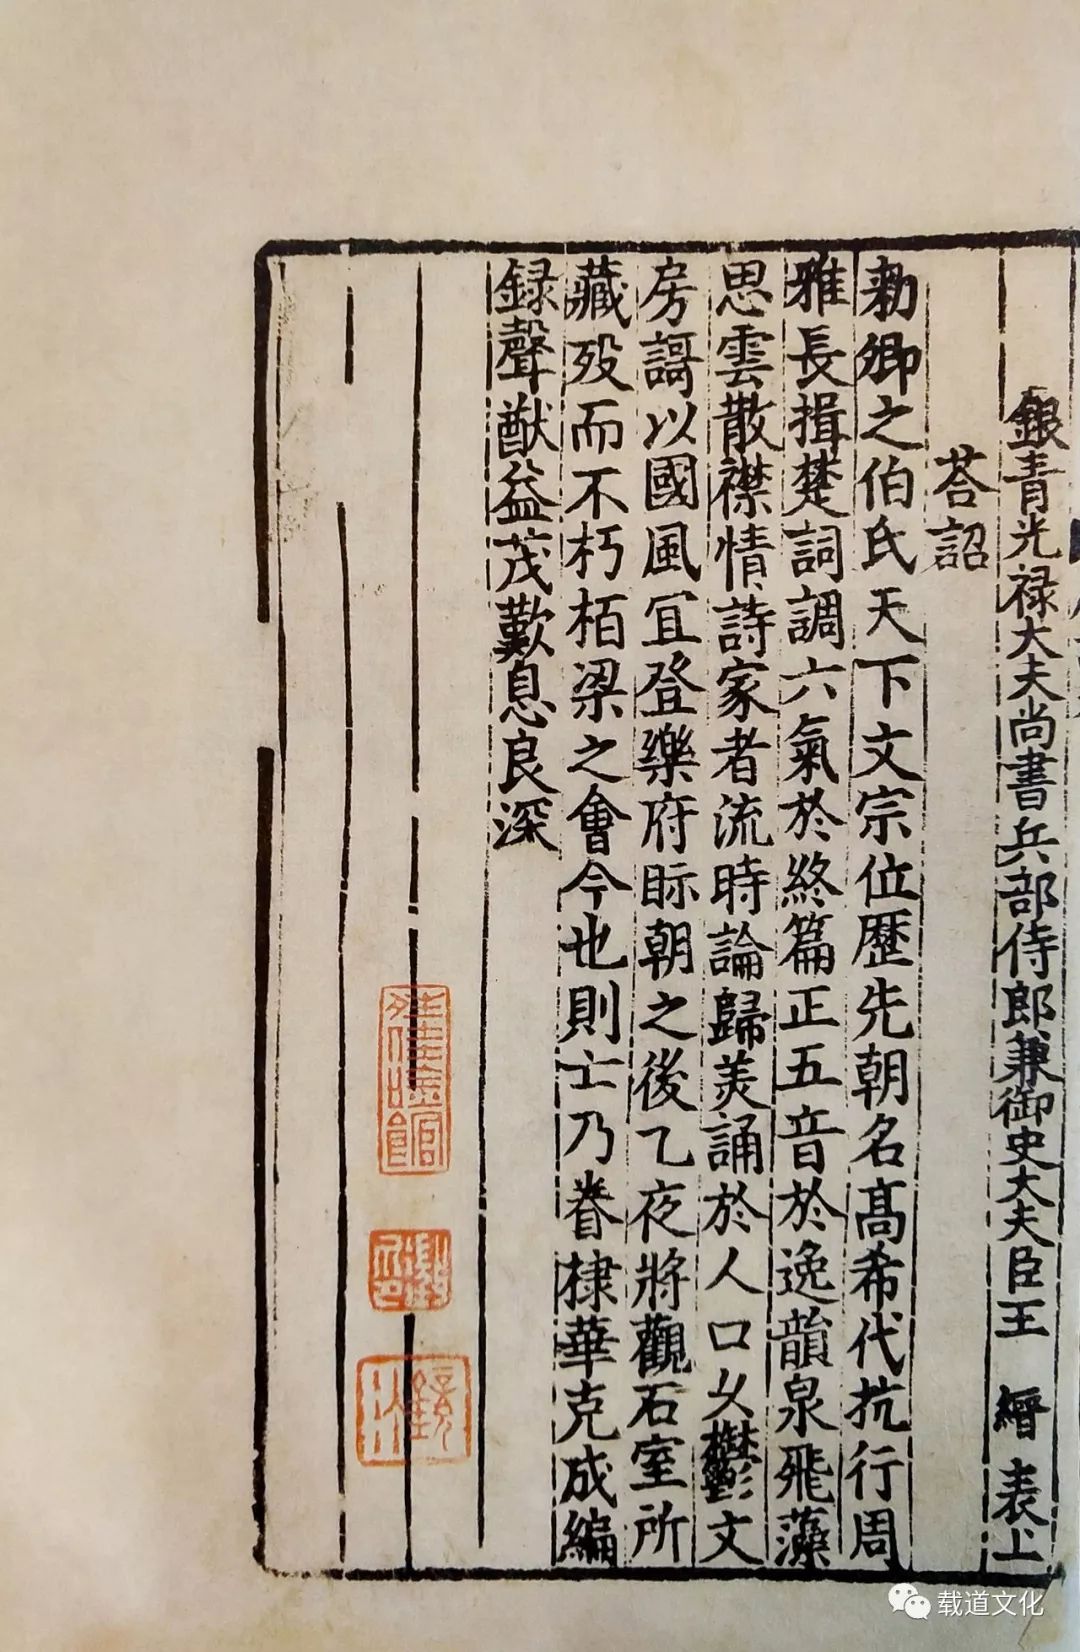 銀青光禄大夫尚書兵部侍郎兼御史大夫臣王 縉 表上
荅詔
勑卿之伯氏天下文宗位歷先朝名髙希代抗行周
雅長揖楚詞調六氣於終篇正五音於逸韻泉飛藻
思雲散襟情詩家者流時論歸羙誦於人口乆欝文
房謌以國風冝登樂府眎朝之後乙夜將觀石室所
藏殁而不朽栢梁之會今也則士乃眷棣華克成編
録聲猷益茂歎息良深
载道文化